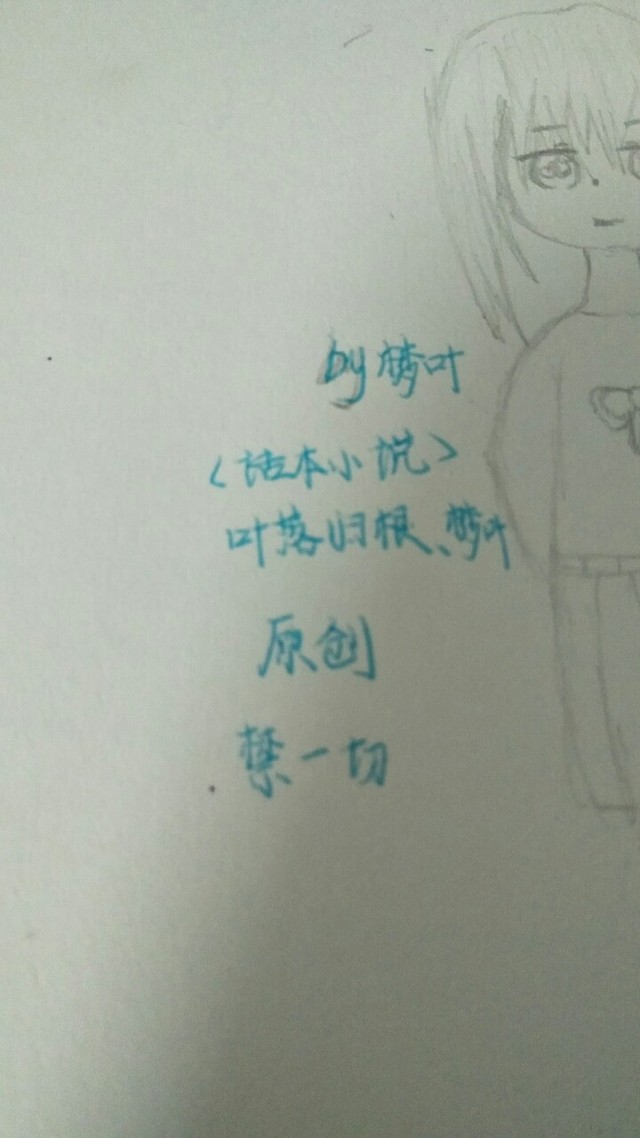 by梦叶
<话本小说>
叶落归根、梦叶
原创
禁一切